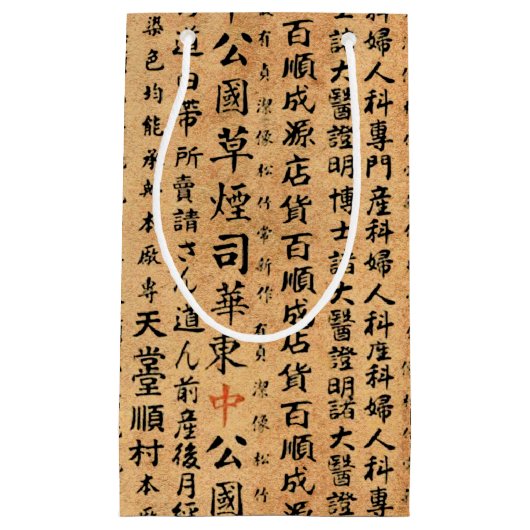 婦人科專門産科婦人科産科婦人科專
諸大醫證明博士諸大醫證明諸大醫證
百順成源店貨百順成店貨百順成源
有貞潔像松竹常新作有貞潔像松竹
公國草煙司華東中公國
道由帶所賣請さん道ん前産後月經
染色均能承本廠專天堂順村本廠